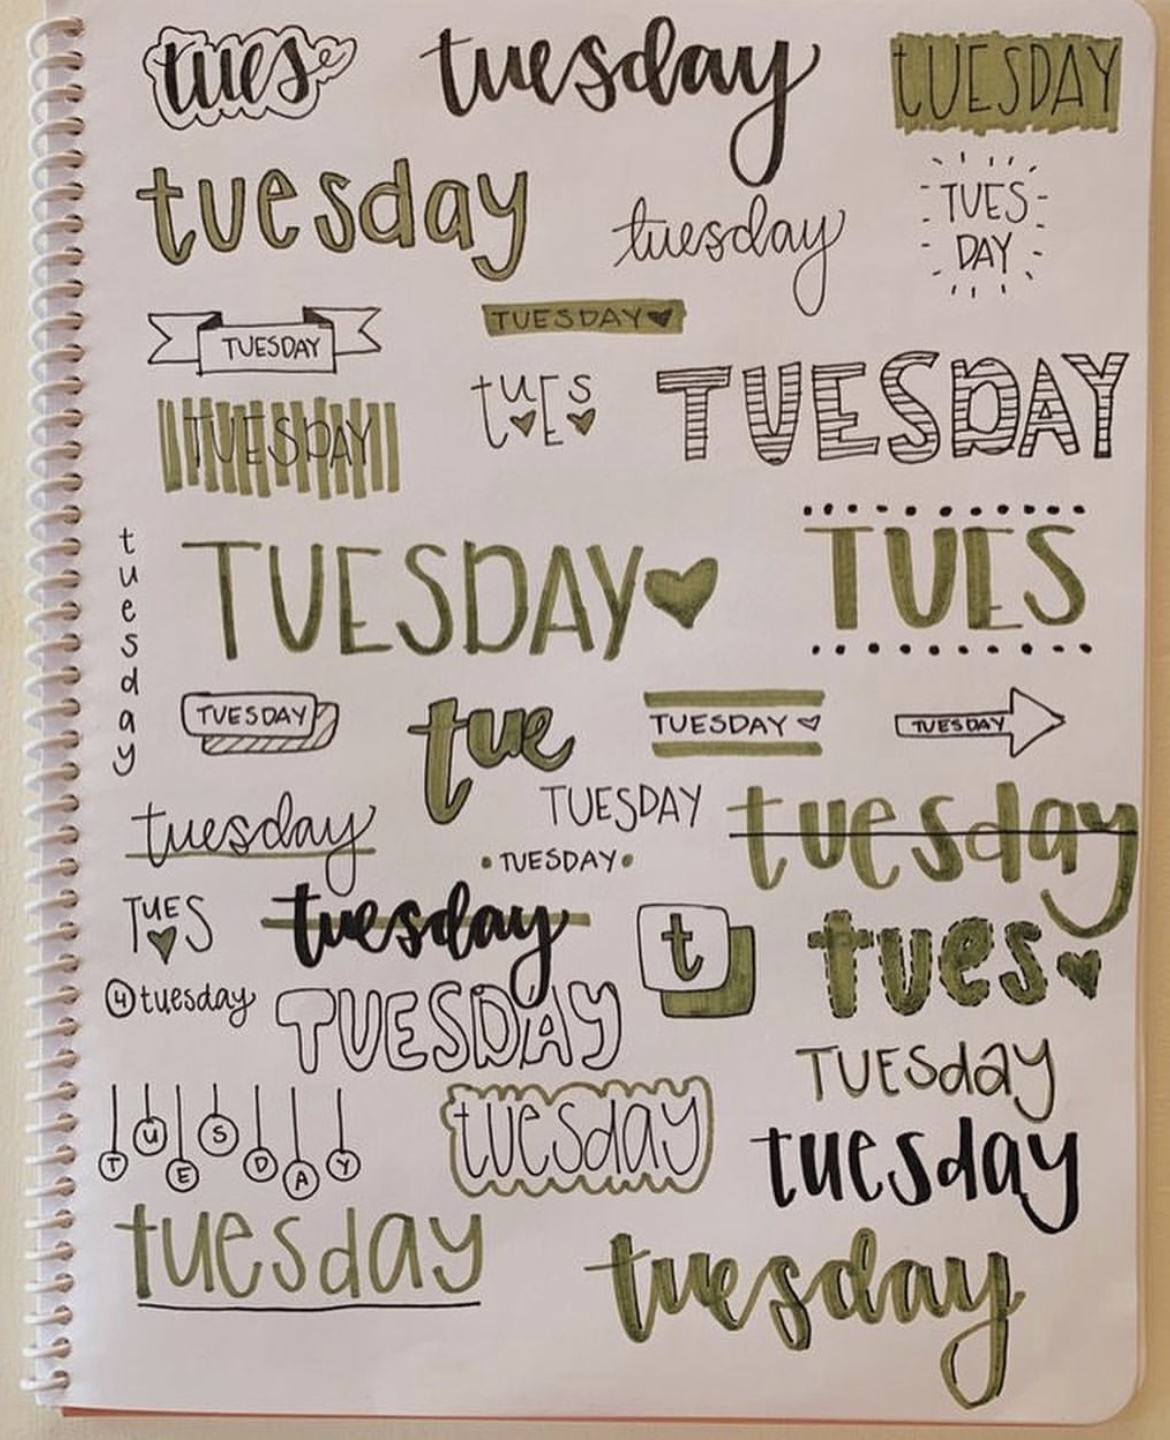 tues
tuesday
tUESDAY
tuesday
tuesday
TUES
DAY
TUESDAY
TUESDAY
tUES
TUESDAY
TUESDAY
tuesday
TUESDAY
TUES
TUESDAY
tue
TUESDAY
TUESDAY
tuesday
TUESDAY
tuesday
TUESDAY
TUES
tuesday
t
tues
4 tuesday
TUESDAY
TUESday
TUESDAY
tuesday
tuesday
tuesday
tuesday